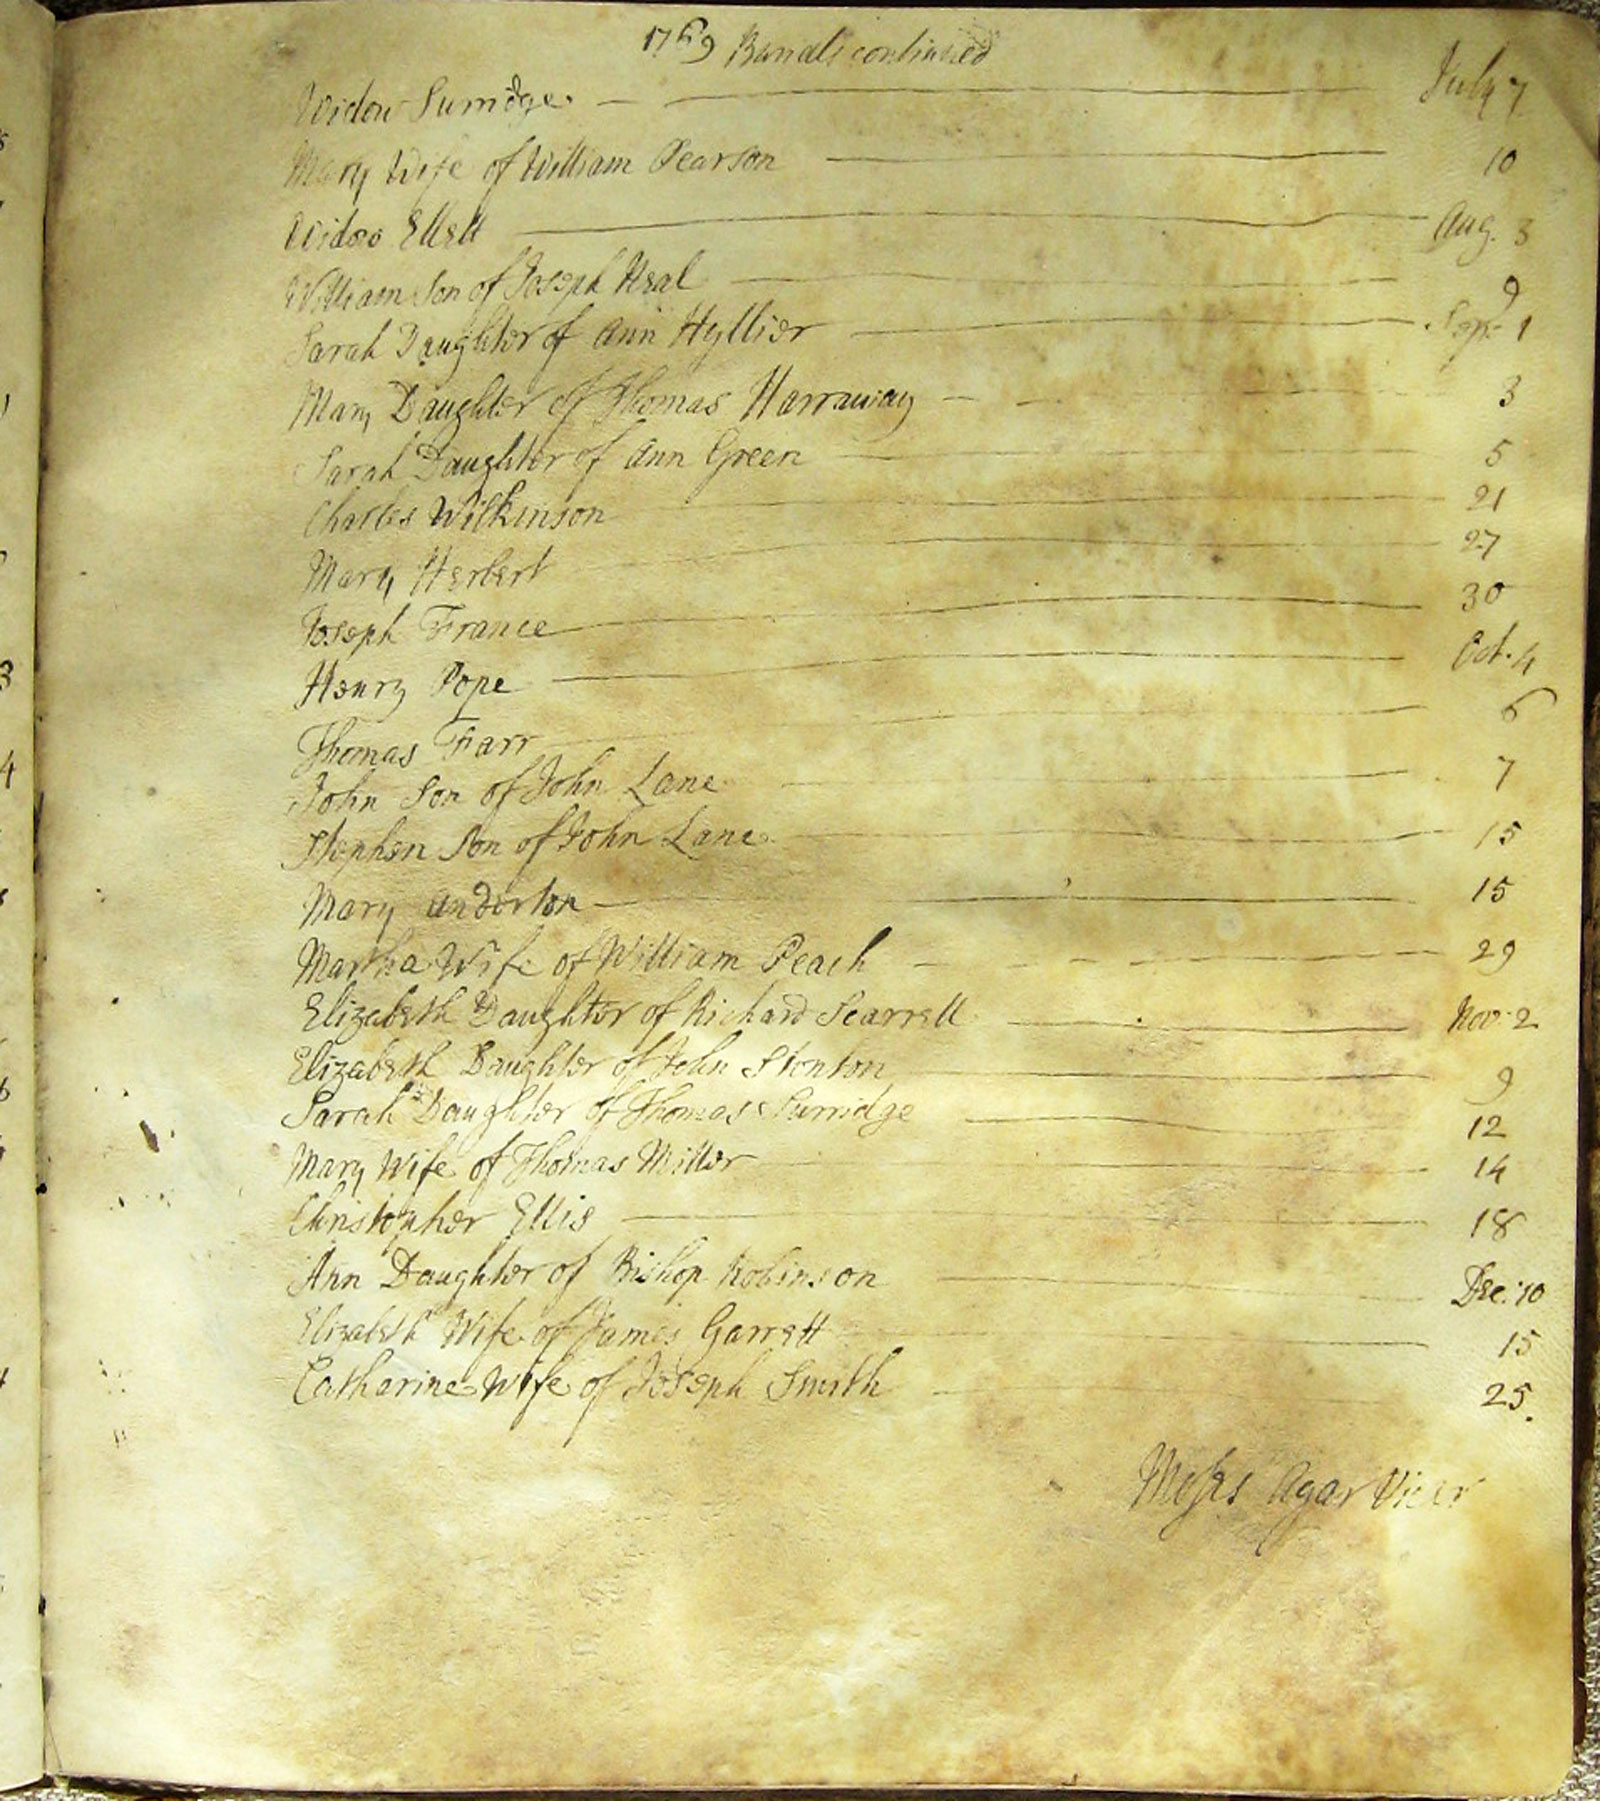 1769 Burials continued
Widow Surridge July 7
Mary Wife of William Pearson 10
Widow Ellett Aug. 3
William Son of Joseph Heal 9
Sarah Daughter of Ann Hyllier Sep. 1
Mary Daughter of Thomas Harraway 3
Sarah Daughter of Ann Green 5
Charles Wilkinson 21
Mary Herbert 27
Joseph France 30
Henry Pope Oct. 4
Thomas Farr 6
John Son of John Lane 7
Stephen Son of John Lane 15
Mary Anderton 15
Martha Wife of William Peach 29
Elizabeth Daughter of Richard Scarrett Nov. 2
Elizabeth Daughter of John Stenton 9
Sarah Daughter of Thomas Surridge 12
Mary Wife of Thomas Miller 14
Christopher Ellis 18
Ann Daughter of Bishop Robinson Dec. 10
Elizabeth Wife of James Garrett 15
Catharine Wife of Joseph Smith 25.
Moses Agar Vicar